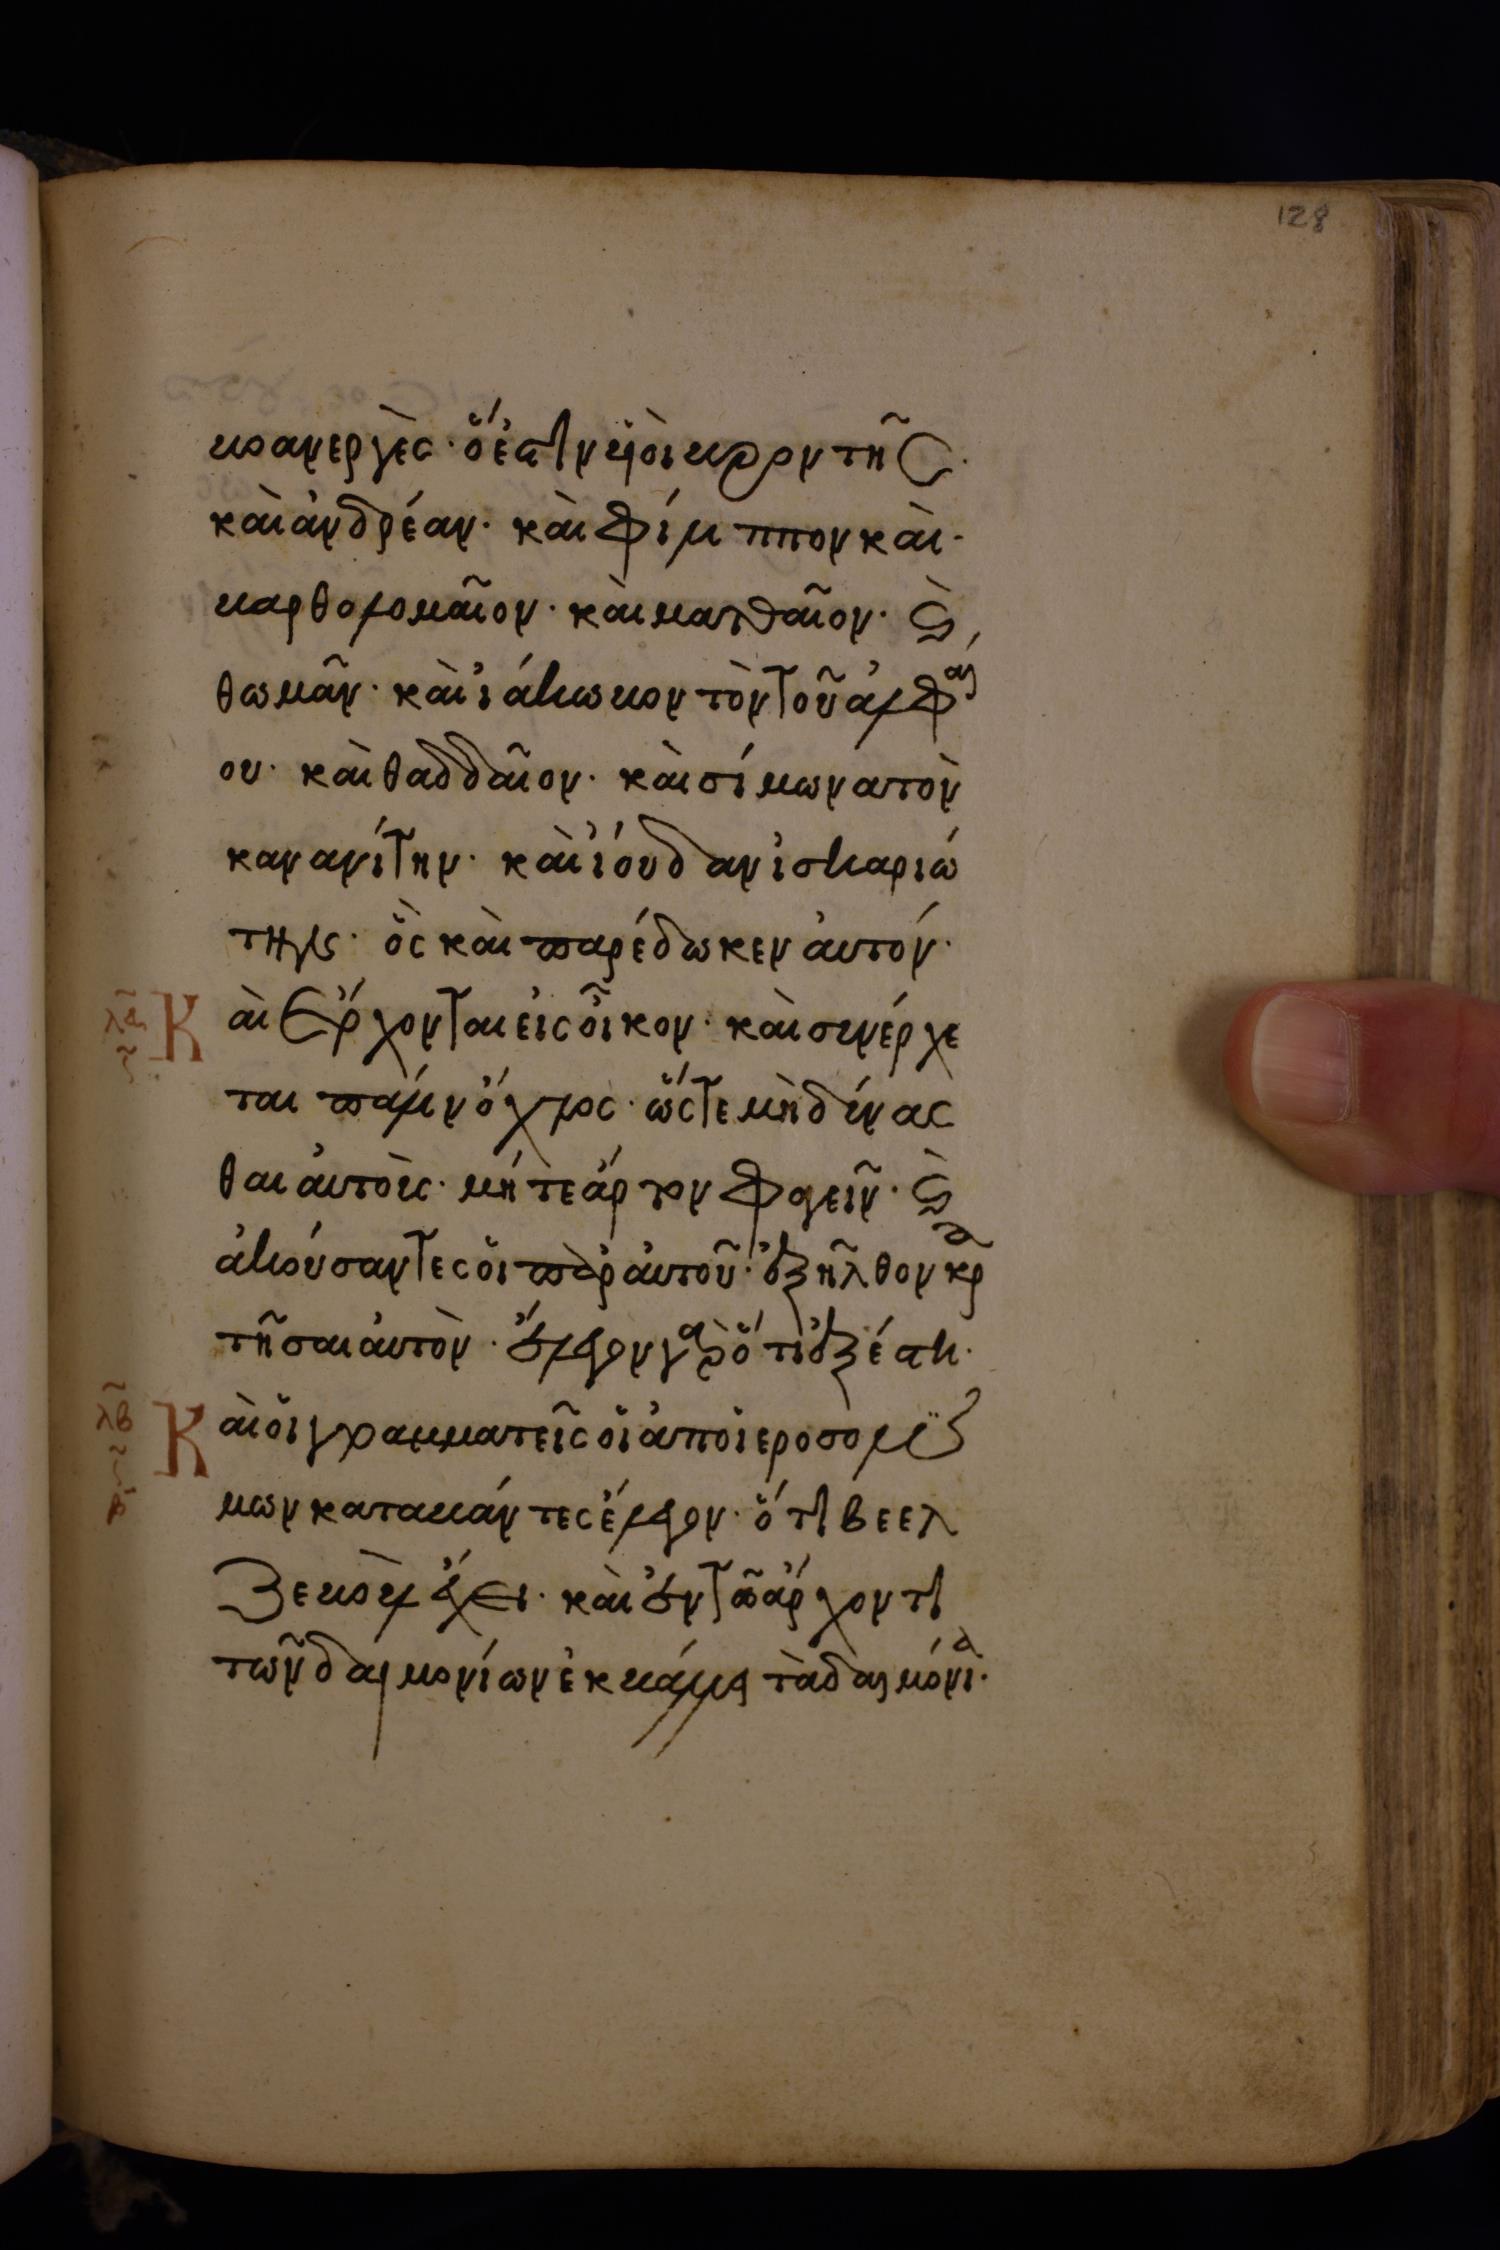 128
βοανεργὲς· ὅ ἐστιν υἱοὶ βροντῆς·
καὶ ἀνδρέαν· καὶ φίλιππον καὶ·
βαρθολομαῖον· καὶ ματθαῖον· καὶ
θωμᾶν· καὶ ἰάκωβον τὸν τοῦ ἀλφαί
ου· καὶ θαδδαῖον· καὶ σίμωνα τὸν
κανανίτην· καὶ ἰούδαν ἰσκαριώ
την· ὃς καὶ παρέδωκεν ἀυτόν·
λα Κ αὶ ἔρχονται εἰς οἶκον· καὶ συνέρχε
ται πάλιν ὄχλος· ὥστε μὴ δύνασ
θαι ἀυτοὺς· μήτε ἄρτον φαγεῖν· καὶ
ἀκούσαντες ὁι παρ ἀυτοῦ· ἐξῆλθον κρα
τῆσαι ἀυτὸν· ἔλεγον γὰρ ὅτι ἐξέστη·
λβ Κ αὶ ὁι γραμματεῖς ὁι ἀπὸ ἱεροσολύ
μων καταβάντες ἔλεγον· ὅτι βεελ
ζεβοὺλ ἔχει· καὶ ἐν τῶ ἄρχοντι
τῶν δαιμονίων ἐκβάλλει τὰ δαιμόνια·